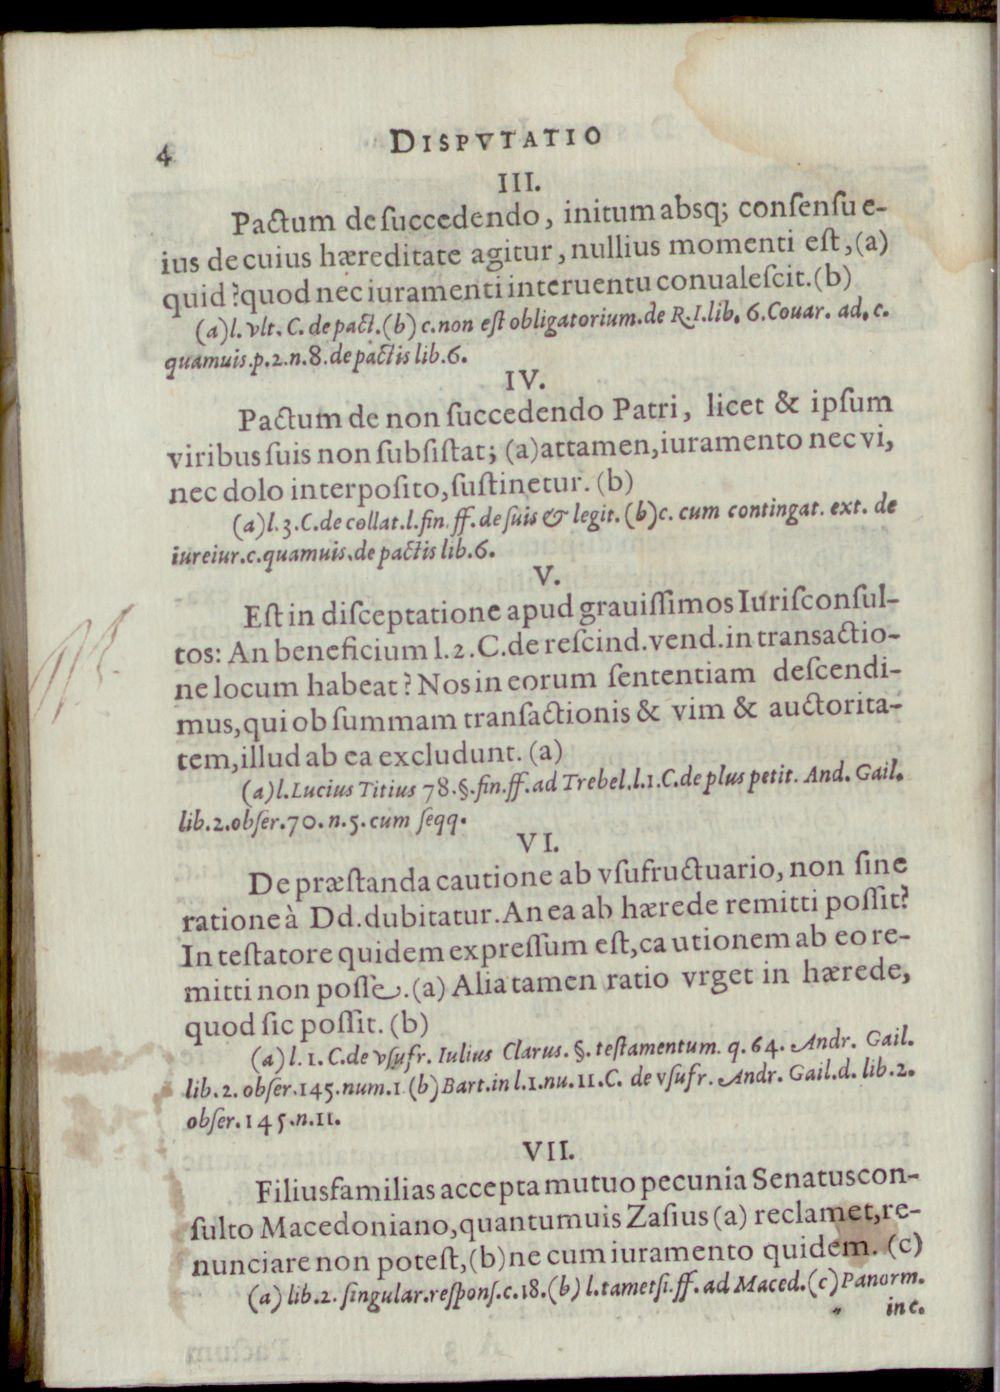 4 DISPVTATIO
III.
Pactum de succedendo, initum absq; consensu e-
ius de cuius hæreditate agitur, nullius momenti est, (a)
quid? quod nec iuramenti interuentu conualescit. (b)
(a) l. vlt. C. de pact. (b) c. non est obligatorium. de R. I. lib. 6. Couar. ad. c.
quamuis. p. 2. n. 8. de pactis lib. 6.
IV.
Pactum de non succedendo Patri, licet & ipsum
viribus suis non subsistat; (a) attamen, iuramento nec vi,
nec dolo interposito, sustinetur. (b)
(a) l. 3. C. de collat. l. fin. ff. de suis & legit. (b) c. cum contingat. ext. de
iureiur. c. quamuis. de pactis lib. 6.
V.
Est in disceptatione apud grauissimos Iurisconsul-
tos: An beneficium l. 2. C. de rescind. vend. in transactio-
ne locum habeat? Nos in eorum sententiam descendi-
mus, qui ob summam transactionis & vim & auctorita-
tem, illud ab ea excludunt. (a)
(a) l. Lucius Titius 78. §. fin. ff. ad Trebel. l. 1. C. de plus petit. And. Gail.
lib. 2. obser. 70. n. 5. cum seqq.
VI.
De præstanda cautione ab vsufructuario, non sine
ratione à Dd. dubitatur. An ea ab hærede remitti possit?
In testatore quidem expressum est, cautionem ab eo re-
mitti non posse. (a) Alia tamen ratio vrget in hærede,
quod sic possit. (b)
(a) l. 1. C. de vsufr. Iulius Clarus. §. testamentum. q. 64. Andr. Gail.
lib. 2. obser. 145. num. 1 (b) Bart. in l. 1. nu. 11. C. de vsufr. Andr. Gail. d. lib. 2.
obser. 145. n. 11.
VII.
Filiusfamilias accepta mutuo pecunia Senatuscon-
sulto Macedoniano, quantumuis Zasius (a) reclamet, re-
nunciare non potest, (b) ne cum iuramento quidem. (c)
(a) lib. 2. singular. respons. c. 18. (b) l. tametsi. ff. ad Maced. (c) Panorm.
in c.